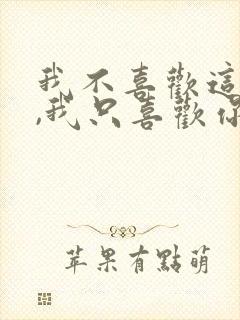 我不喜歡這
,我只喜歡你
苹果有點萌